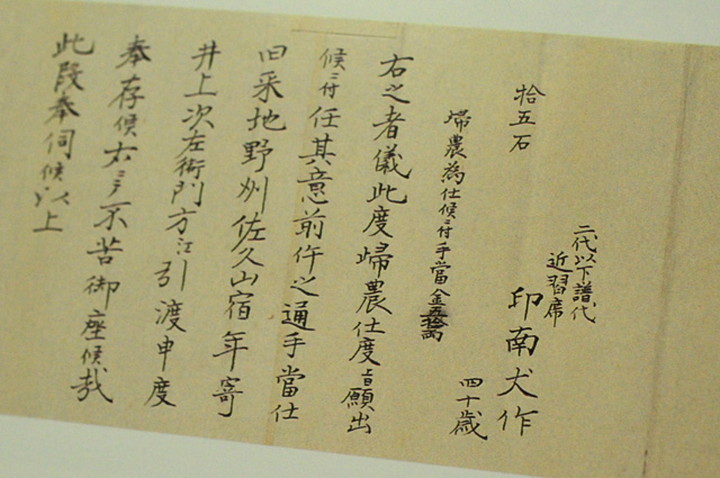 二代以下譜代
近習席
拾五石
印南犬作
四十歳
帰農為仕候ニ付手當金五拾両
右之者儀此度帰農仕度旨願出
候ニ付任其意前件之通手當仕
旧采地野州佐久山宿年寄
井上次左衛門方江引渡申度
奉存候右ニ而不苦御座候哉
此段奉伺候以上